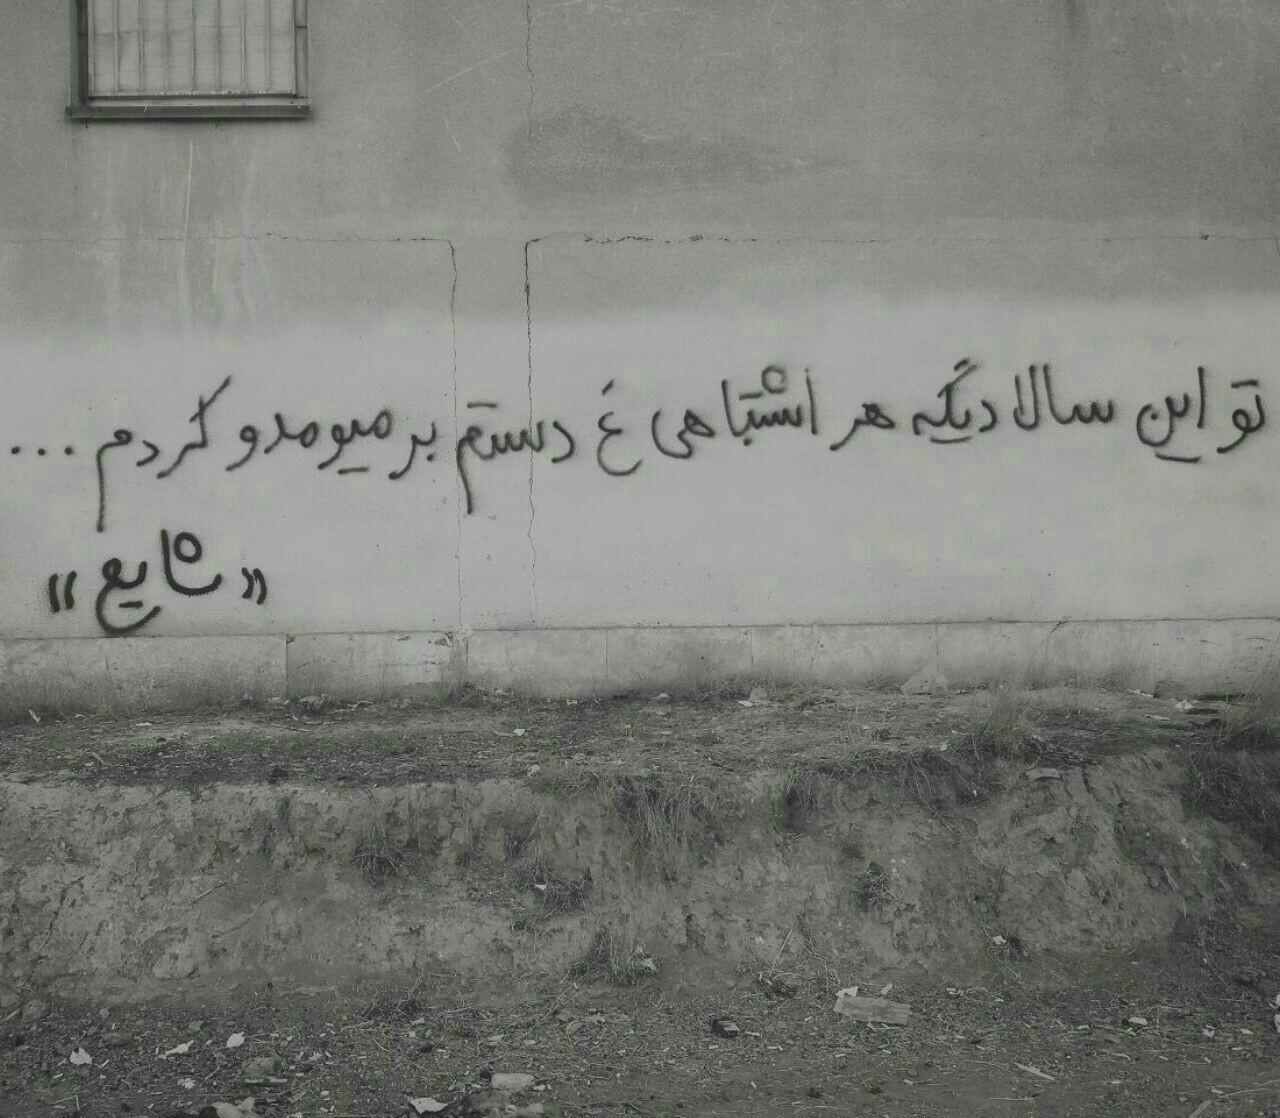 تو این سالا دیگه هر اشتباهی غ دستم بر میومدو کردم ...
«شایع»